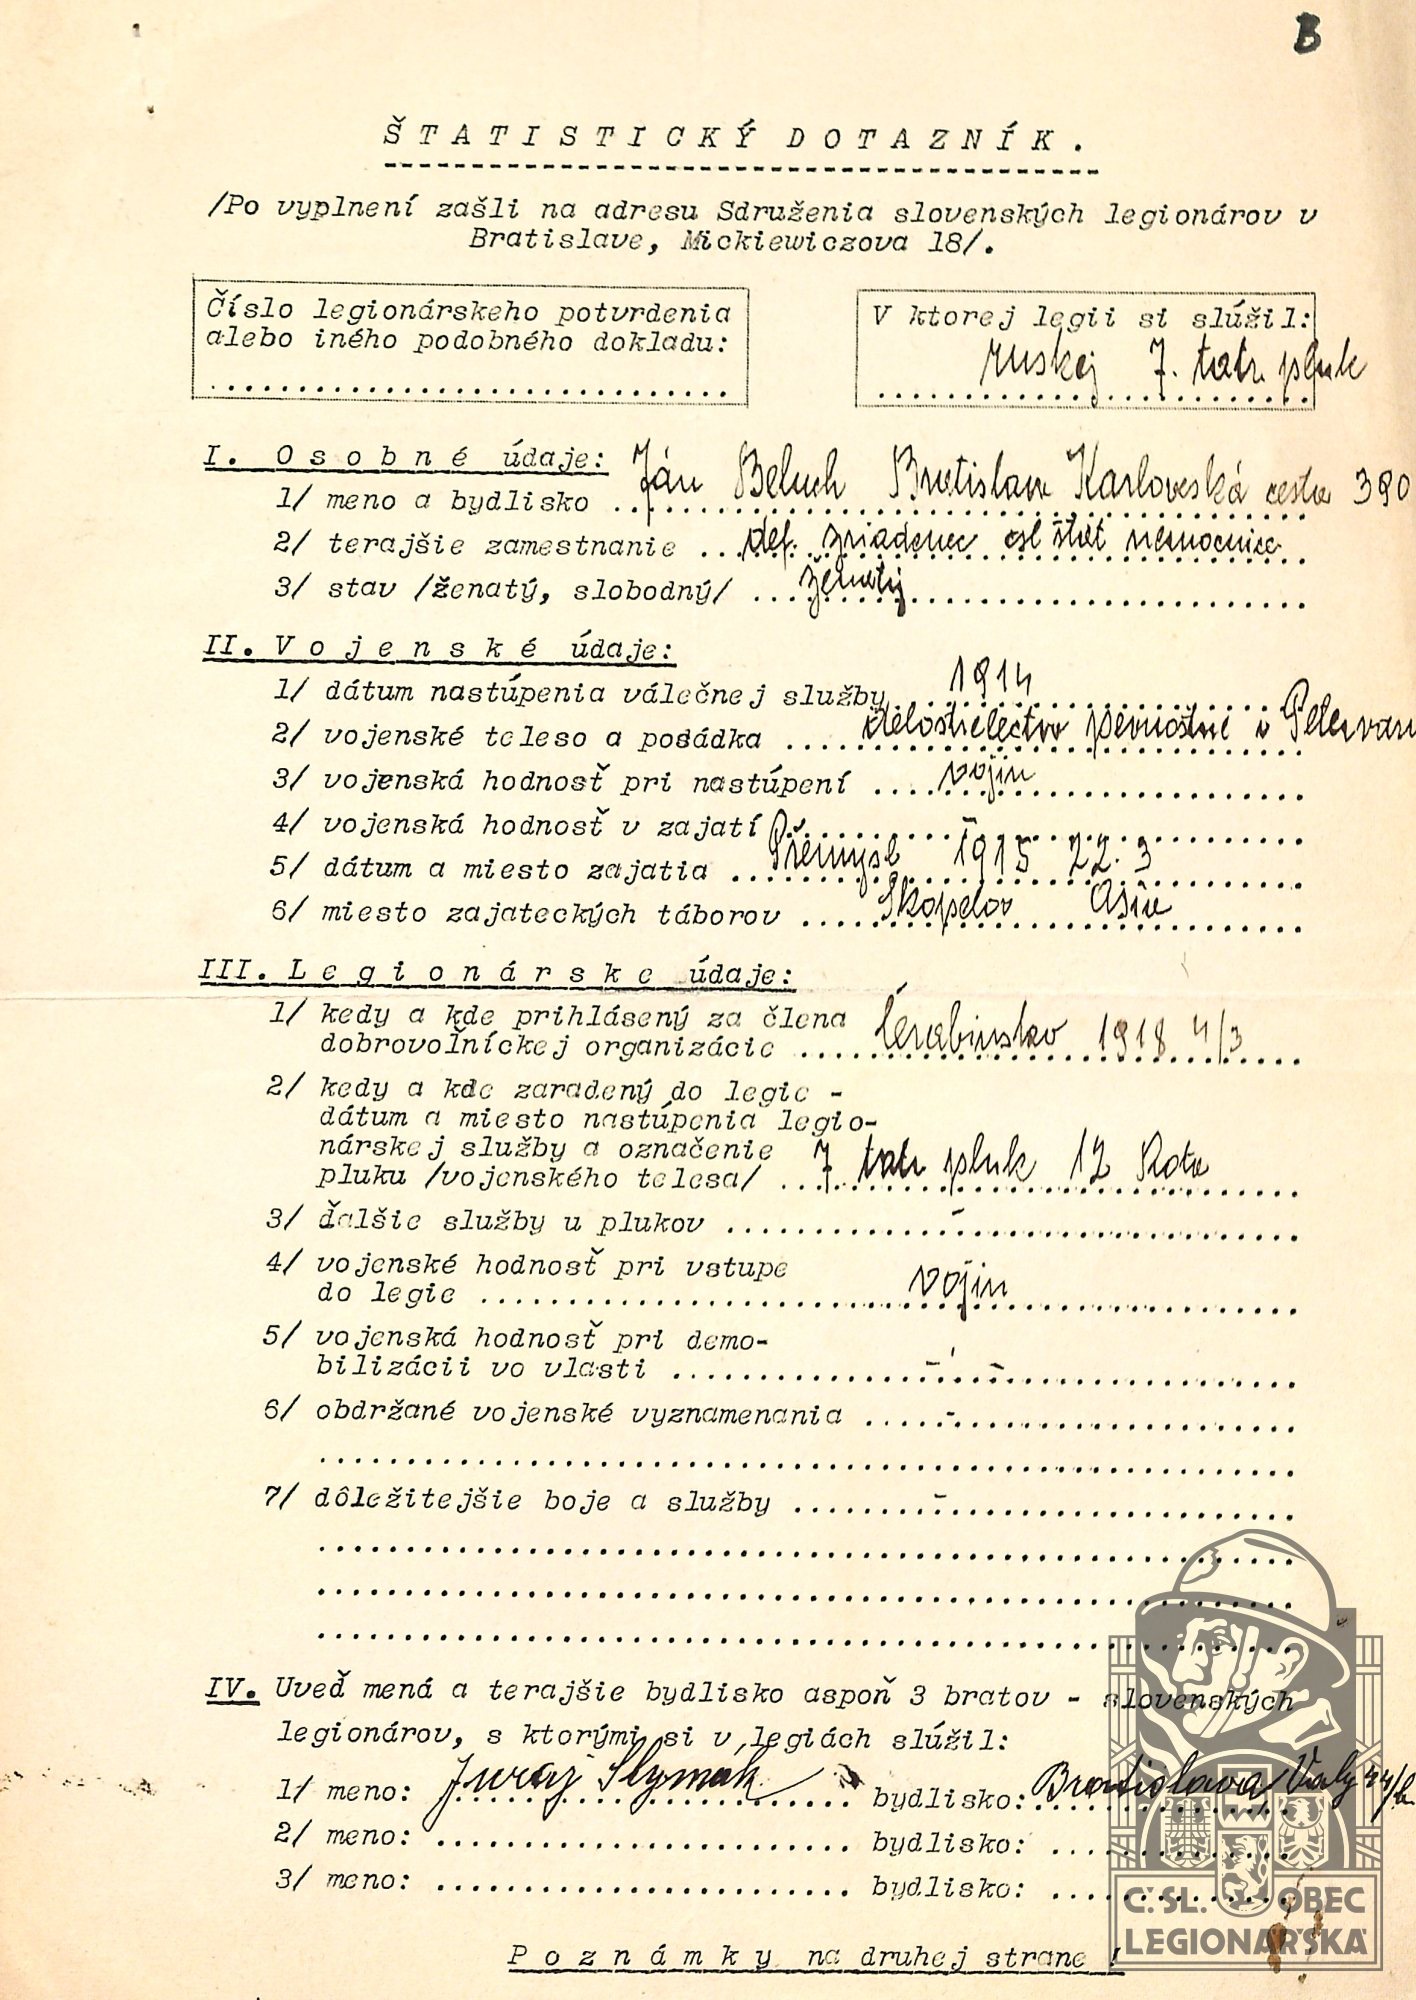 B
ŠTATISTICKÝ DOTAZNÍK.
/Po vyplnení zašli na adresu Sdruženia slovenských legionárov v
Bratislave, Mickiewiczova 18/.
Číslo legionárskeho potvrdenia
alebo iného podobného dokladu:
V ktorej legii si slúžil:
ruskej 7. tatr. pluk
I. Osobné údaje:
1/ meno a bydlisko Ján Beluch Bratislava Karloveská cesta 390
2/ terajšie zamestnanie def. zriadenec čsl štát nemocnice
3/ stav /ženatý, slobodný/ ženatý
II. Vojenské údaje:
1/ dátum nastúpenia válečnej služby 1914
2/ vojenské teleso a posádka delostrelectvo pevnostné v Petervar
3/ vojenská hodnosť pri nastúpení vojin
4/ vojenská hodnosť v zajatí -
5/ dátum a miesto zajatia Přemysl 1915 22.3
6/ miesto zajateckých táborov Skopelov
III. Legionárske údaje:
1/ kedy a kde prihlásený za člena
dobrovoľníckej organizácie Čerabinsko 1918 4/3
2/ kedy a kde zaradený do legie -
dátum a miesto nastúpenia legio-
nárskej služby a označenie
pluku /vojenského telesa/ 7 tatr pluk 12 Rota
3/ ďalšie služby u plukov -
4/ vojenské hodnosť pri vstupe
do legie vojin
5/ vojenská hodnosť pri demo-
bilizácii vo vlasti - -
6/ obdržané vojenské vyznamenania -
7/ dôležitejšie boje a služby -
IV. Uveď mená a terajšie bydlisko aspoň 3 bratov - slovenských
legionárov, s ktorými si v legiách slúžil:
1/ meno: Juraj Slymák bydlisko: Bratislava
2/ meno: bydlisko:
3/ meno: bydlisko:
Poznámky na druhej strane!
Č.SL. OBEC
LEGIONÁŘSKÁ